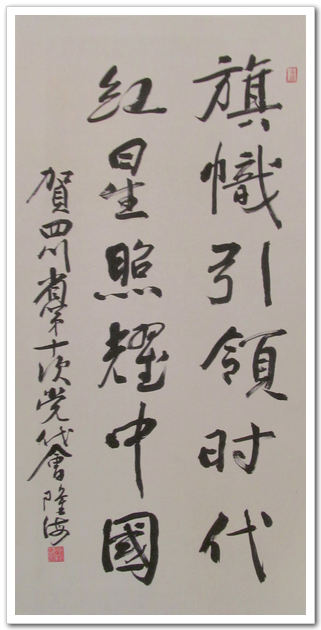 旗幟引領时代
红星照耀中國
賀四川省第十次党代會 隆海